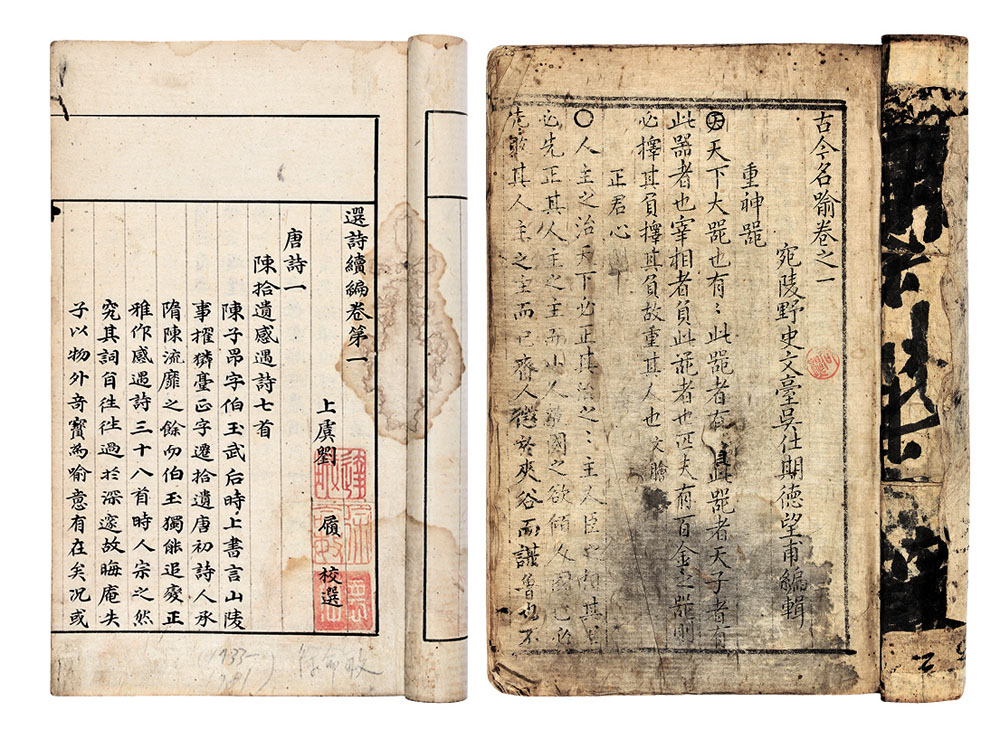 選詩續編卷第一
上虞劉 履 校選
唐詩一
陳拾遺感遇詩七首
陳子昂字伯玉武后時上書言山陵
事擢獜臺正字遷拾遺唐初詩人承
隋陳流靡之餘而伯玉獨能追癈正
雅作感遇詩三十八首時人宗之然
究其詞旨往往過於深邃故晦庵失
子以物外奇寶為喻意有在矣况或
古今名喻卷之一
宛陵野史文臺吳仕期德望甫編輯
重神噐
天下大噐也有〻此噐者有 此噐者天子者有
此噐者也宰相者負此噐者也匹夫有百金之噐則
必擇其負擇其負故重其人也 文贍
正君心
〇人主之治天下必正其治之〻主人臣 其主
必先正其人主之主而小人 國之欲傾人國也必
先 其人主之主而已齊人 於夾谷而謀魯也不